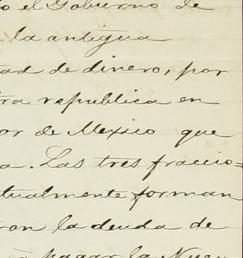 o el Gobierno de
la antigua
tad de dinero, por
tra republica en
or de Mexico que
a. Las tres fraccio-
tualmente forman
ron la deuda de
pagar la Nuev